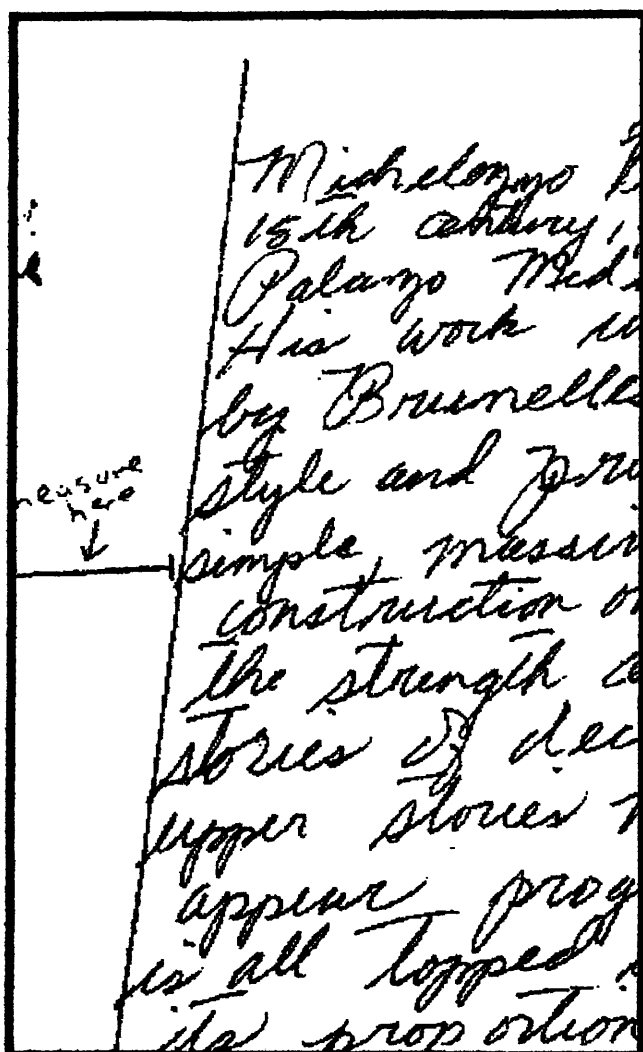 Michelozzo
15th century,
Palazzo Medi
His work
by Brunelles
style and pr
measure
here
simple, massi
construction o
the strength
stories of dec
upper stories
appear prog
is all topped
its proportion